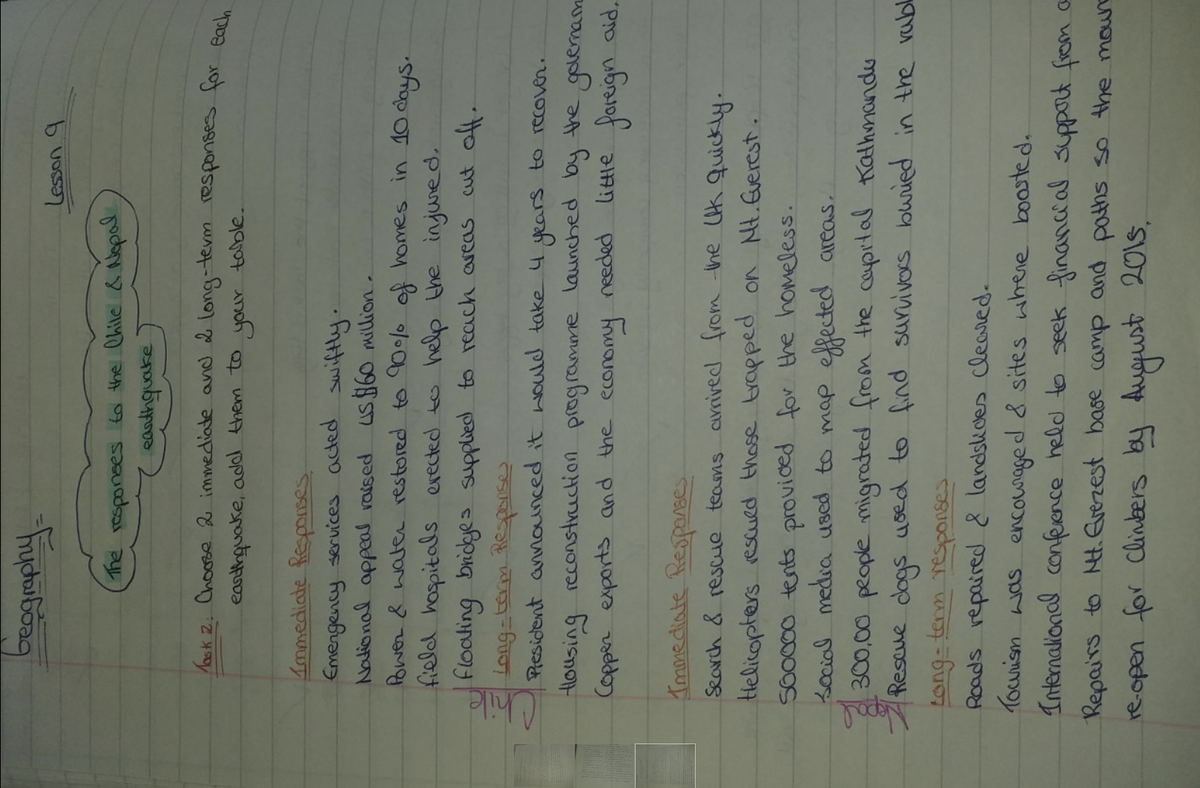 Geography
Lesson 9
The responses to the Chile & Nepal
earthquake
Task 2: Choose 2 immediate and 2 long-term responses for each
earthquake, add them to your table.
Immediate Responses
Emergency services acted swiftly.
National appeal raised US$60 million.
Power & water restored to 90% of homes in 10 days.
field hospitals erected to help the injured.
Floating bridges supplied to reach areas cut off.
Chile
Long-term Response
President announced it would take 4 years to recover.
Housing reconstruction programme launched by the governam
Copper exports and the economy needed little foreign aid.
Immediate Responses
Search & rescue teams arrived from the UK Quickly.
Helicopters resued those trapped on Mt.Everest.
500000 tents provided for the homeless.
Social media used to map effected areas.
Nepal
300,00 people migrated from the capital Kathmandu
Rescue dogs used to find survivors buried in the rubbl
Long-term responses
Roads repaired & landslides cleared.
Tourism was encouraged & sites where boosted.
International conference held to seek financial support from
Repairs to Mt.Everest base camp and paths so the moun
re-open for climbers by August 2015.